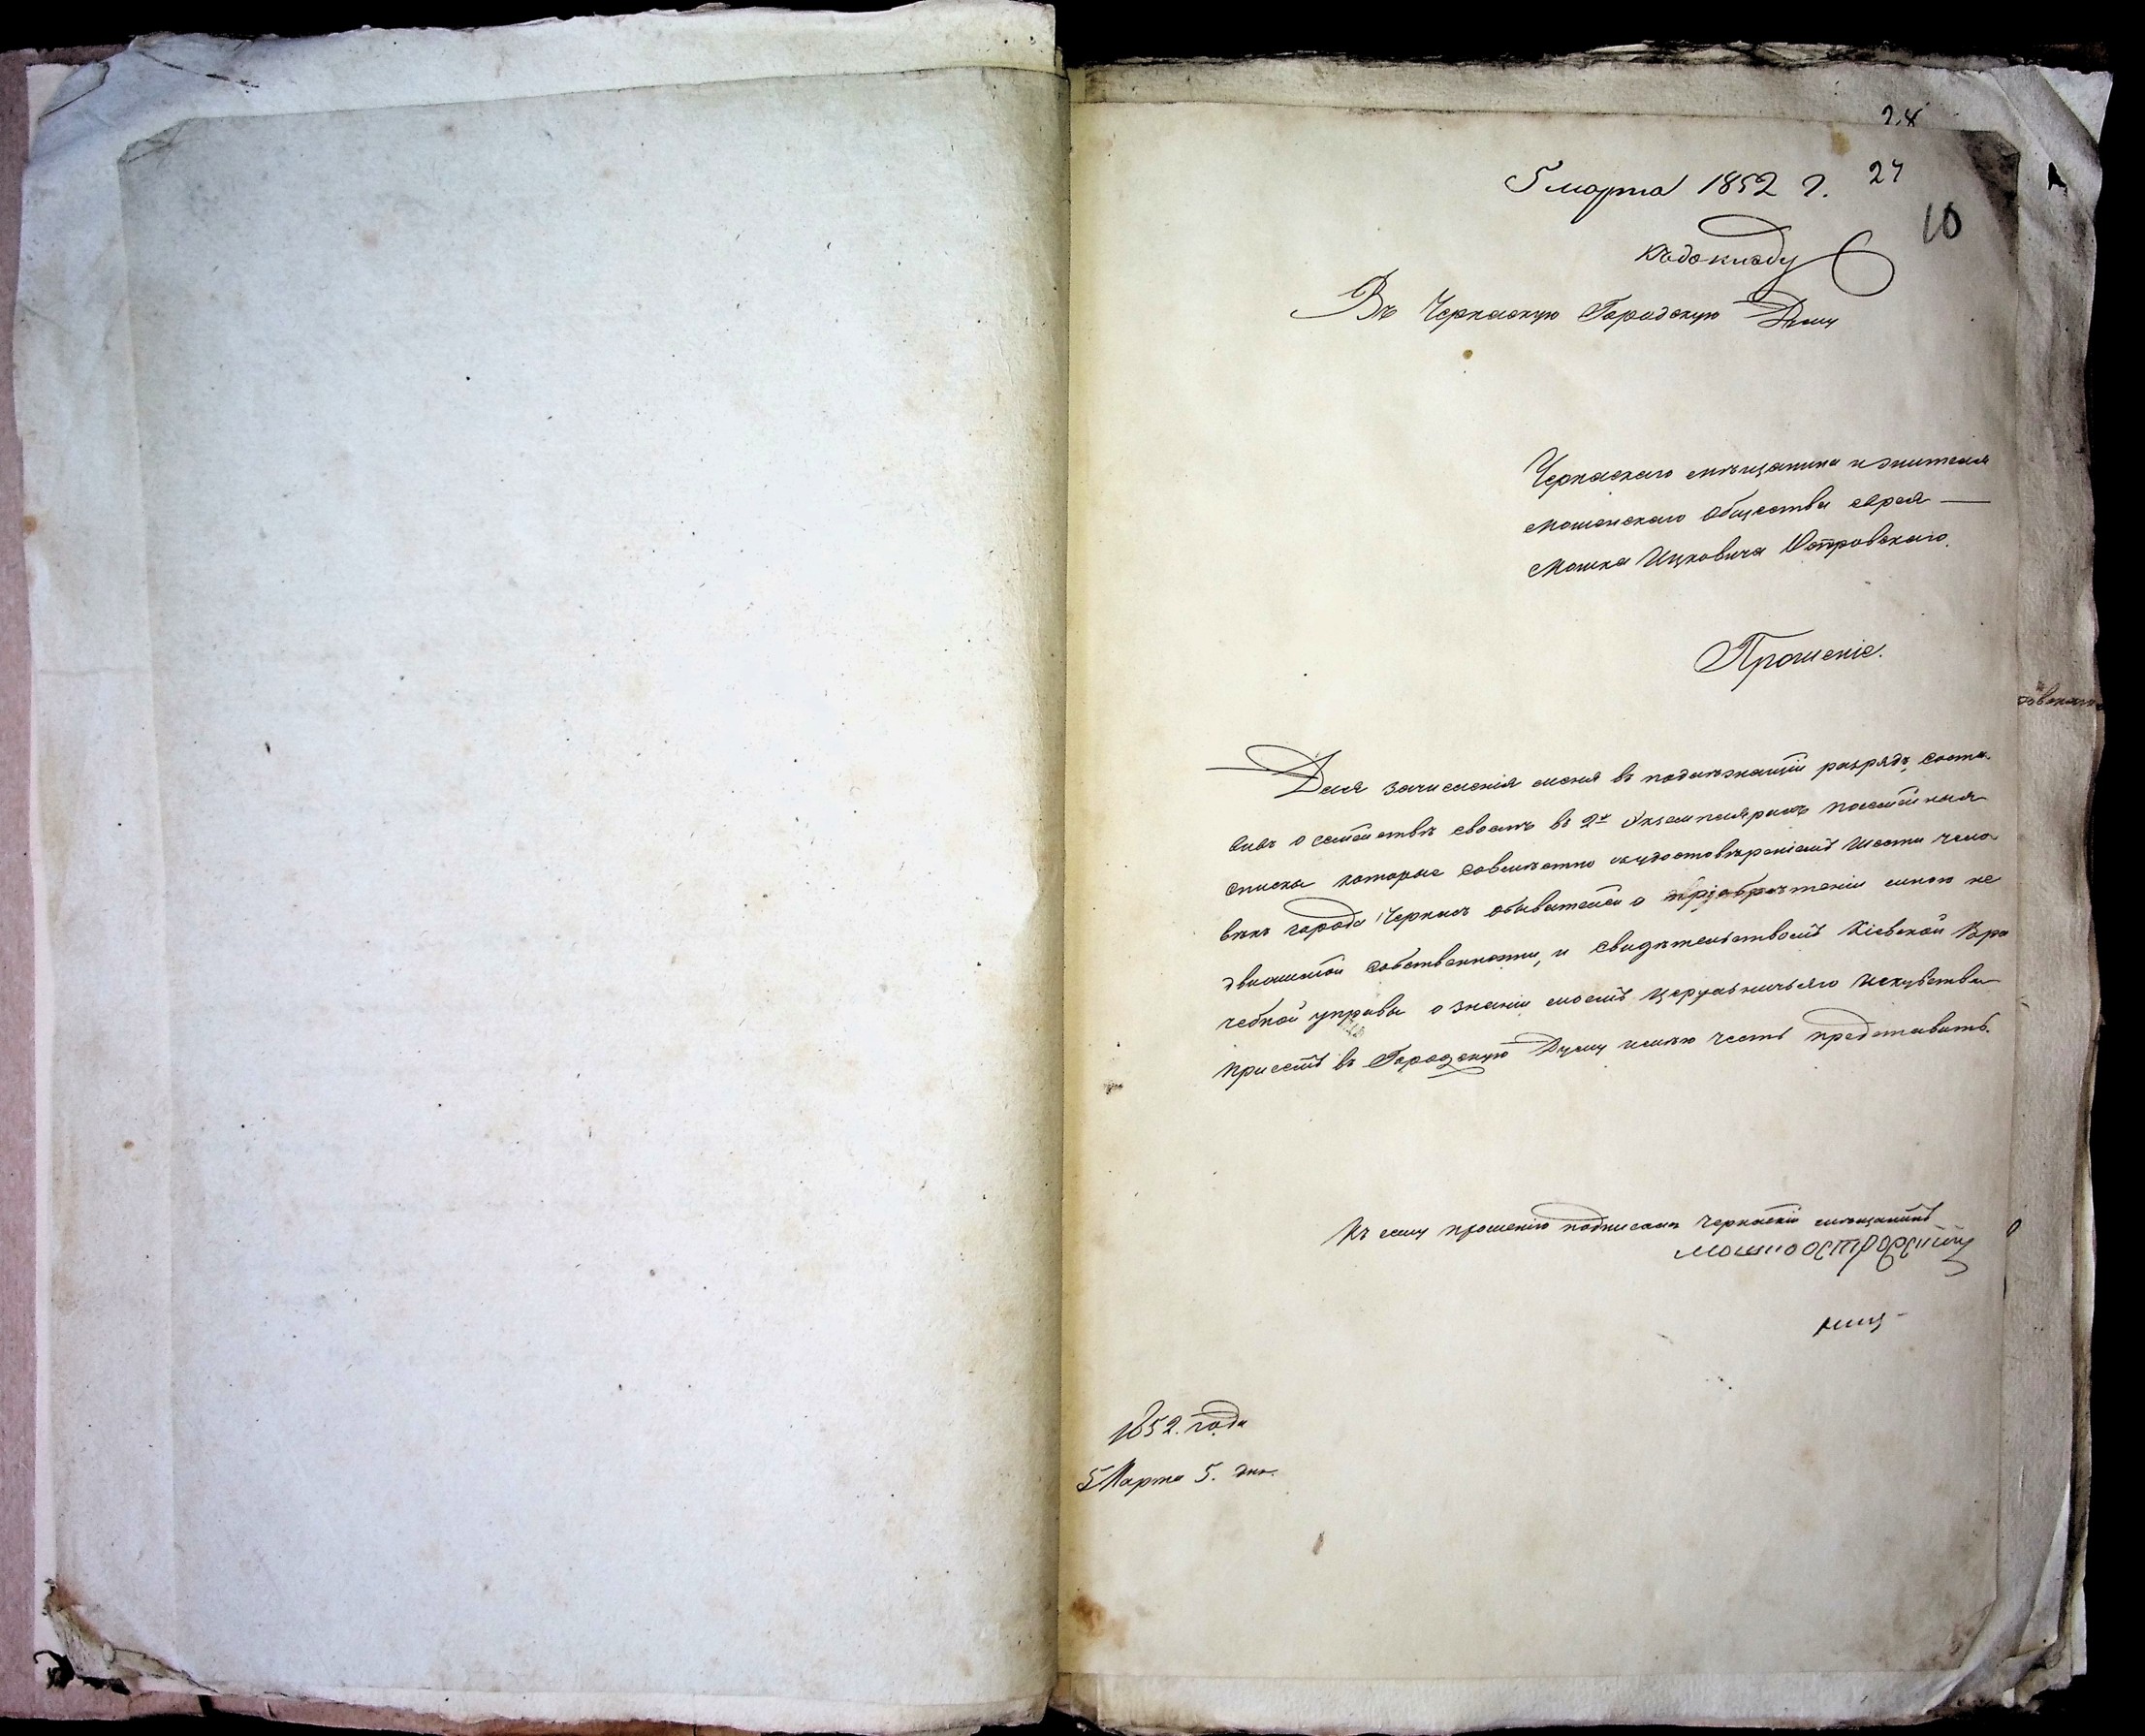 24
5 марта 1852 г. 27
10
къ докладу
Въ Черкаскую Городскую Думу
Черкаскаго мѣщанина и жителя
Мошенскаго общества еврея —
Мошка Ицковича Островскаго.
Прошеніе.
Для зачисленія меня въ подлежащій разрядъ, соста-
вивъ о семействѣ своемъ въ 2х Экземплярахъ посемейныя
списки которые совмѣстно съ удостовѣреніемъ шести чело
вѣкъ города Черкасъ обывателей о пріобрѣтеніи мною не
движимой собственности, и свидѣтельствомъ Кіевской Вра
чебной управы о знаніи моемъ церульничьяго искуства
при семъ въ Городскую Думу имѣю честь представить.
Къ сему прошенію подписалъ Черкаскій мѣщанинъ
мошко островский
1852. года
Марта 5. дня.